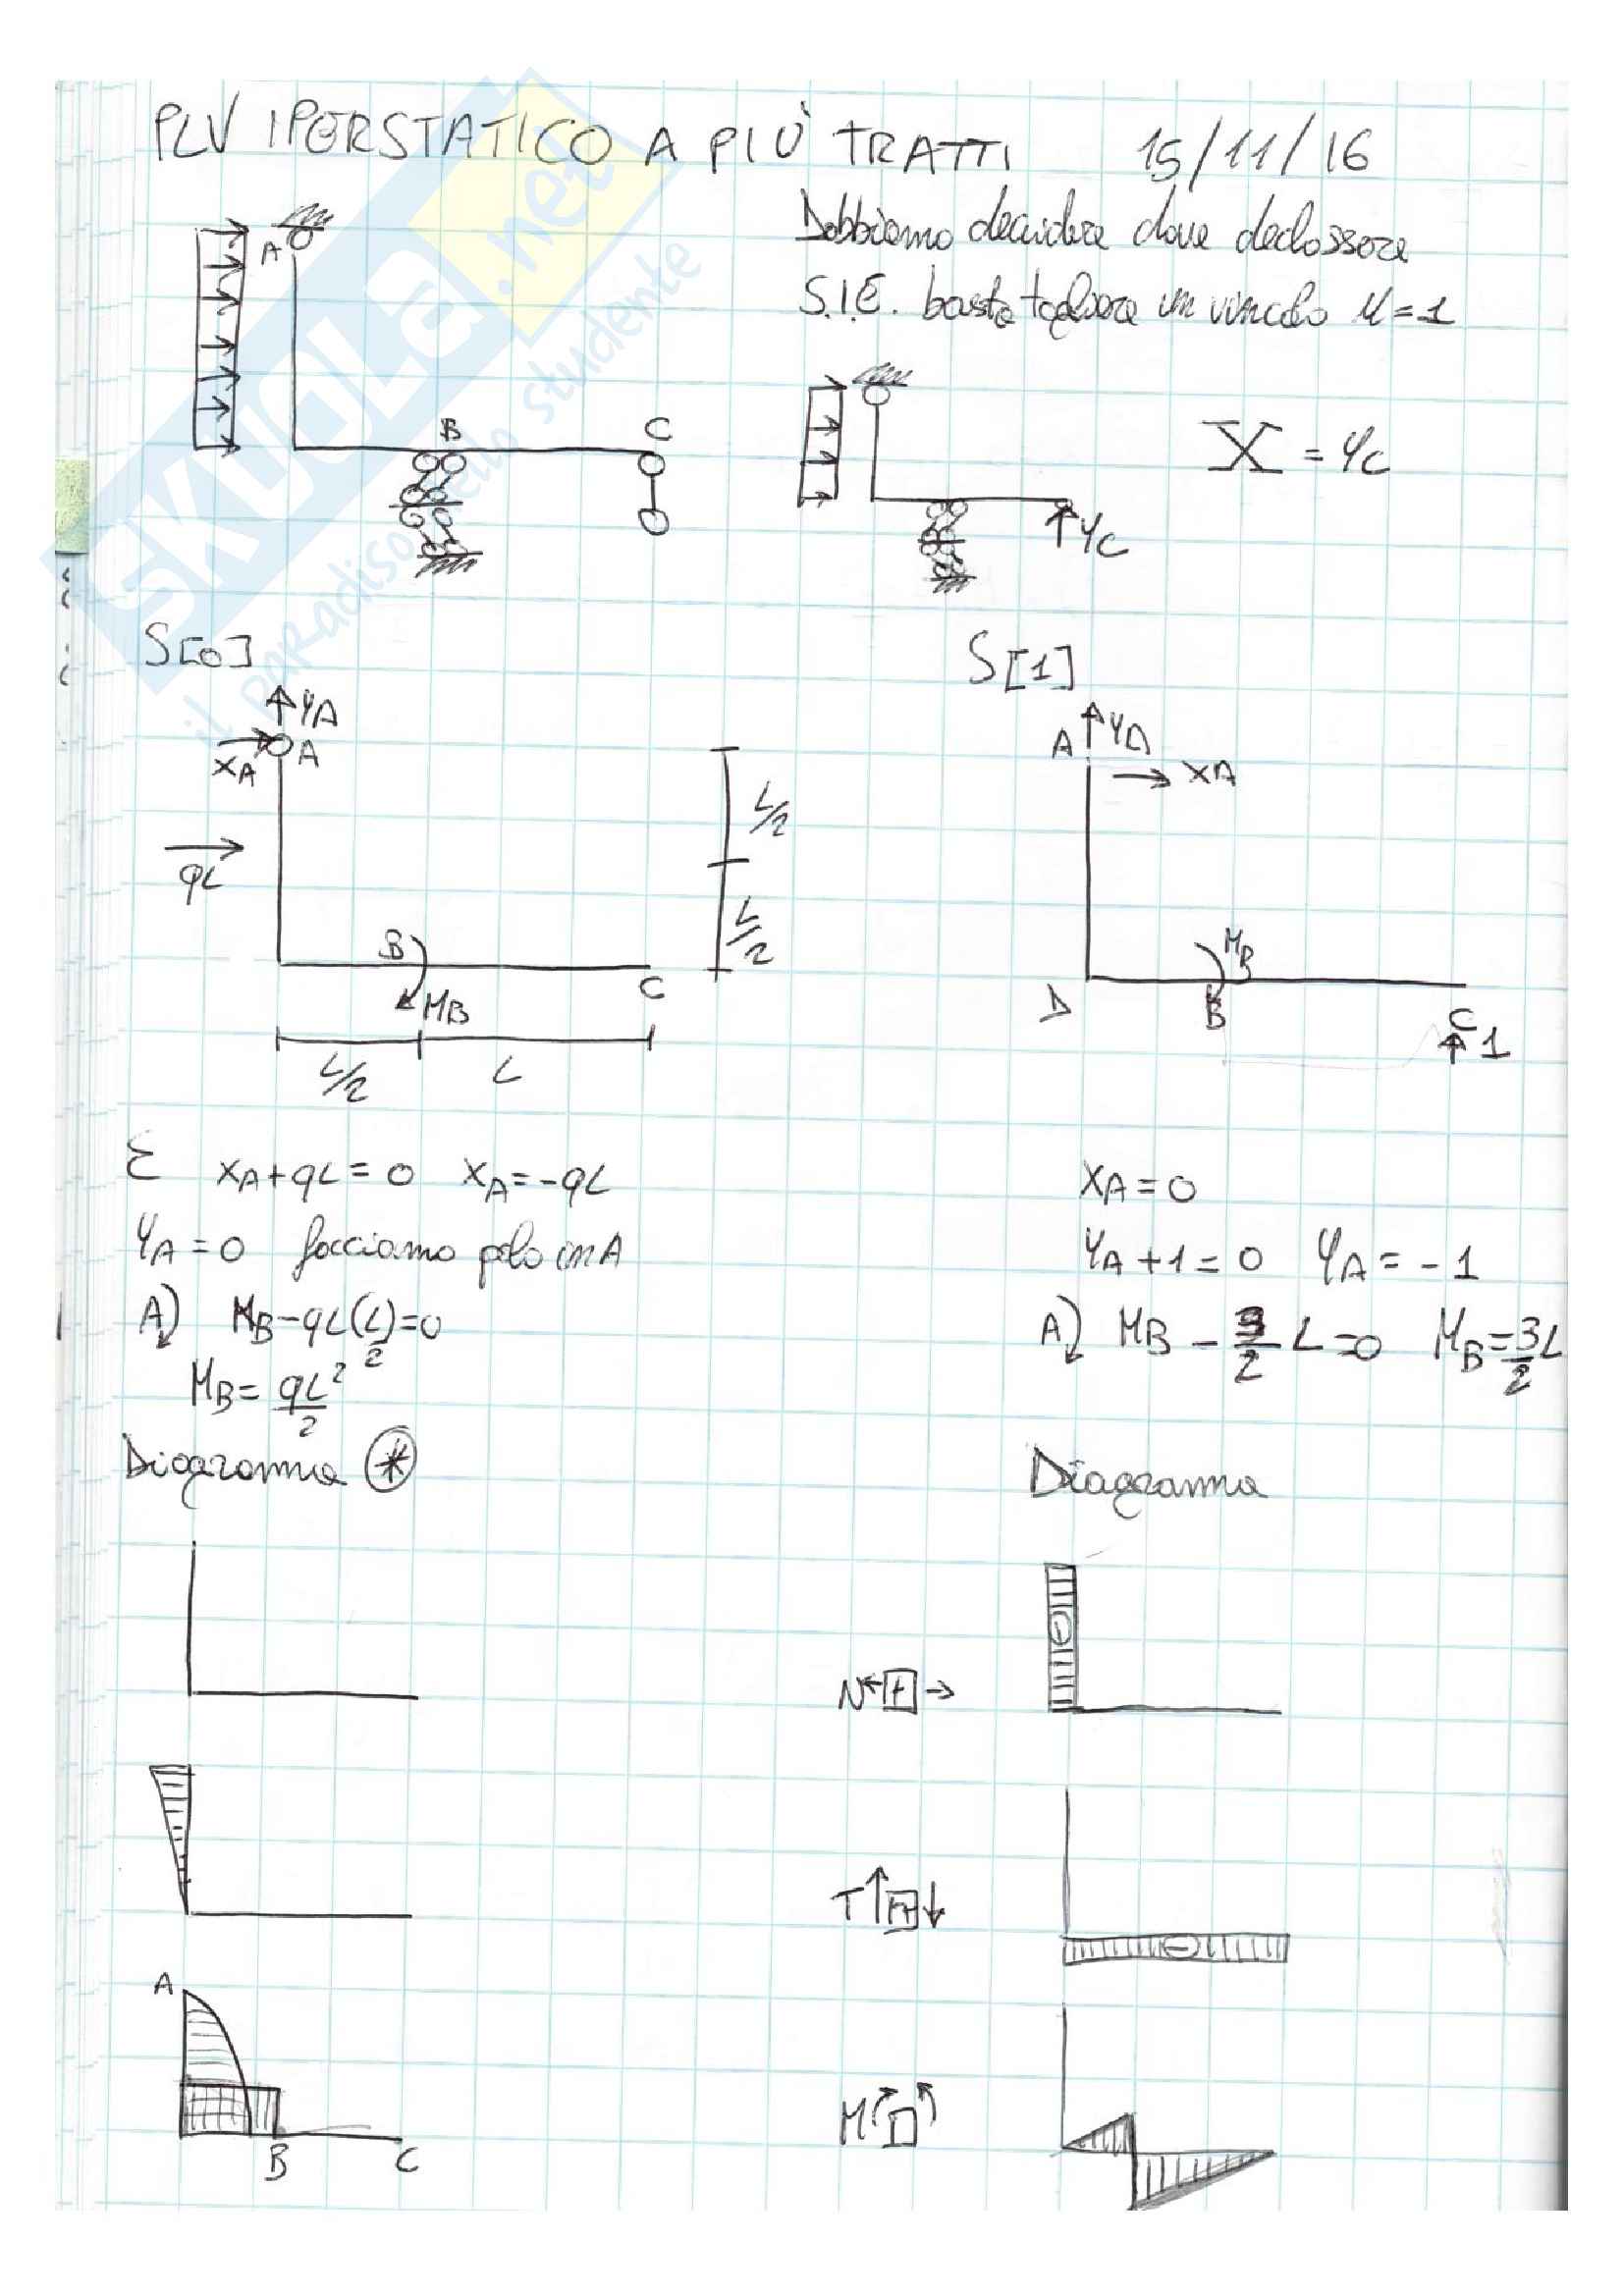 PLV IPERSTATICO A PIÙ TRATTI 15/11/16
Dobbiamo decidere dove declassare
S.I.E. basta togliere un vincolo μ=1
A
B
C
X = YC
YC
S[0]
S[1]
YA
XA
A
qL
B
MB
C
L/2
L/2
L/2
L
A
YA
XA
D
MB
B
C
1
Σ XA+qL=0 XA=-qL
YA=0 facciamo polo in A
A) MB-qL(L/2)=0
MB=qL²/2
Diagramma *
XA=0
YA+1=0 YA=-1
A) MB-3/2 L=0 MB=3/2 L
Diagramma
N + -
T + -
A
B
C
M
SKUOLA.net
il paradiso dello studente